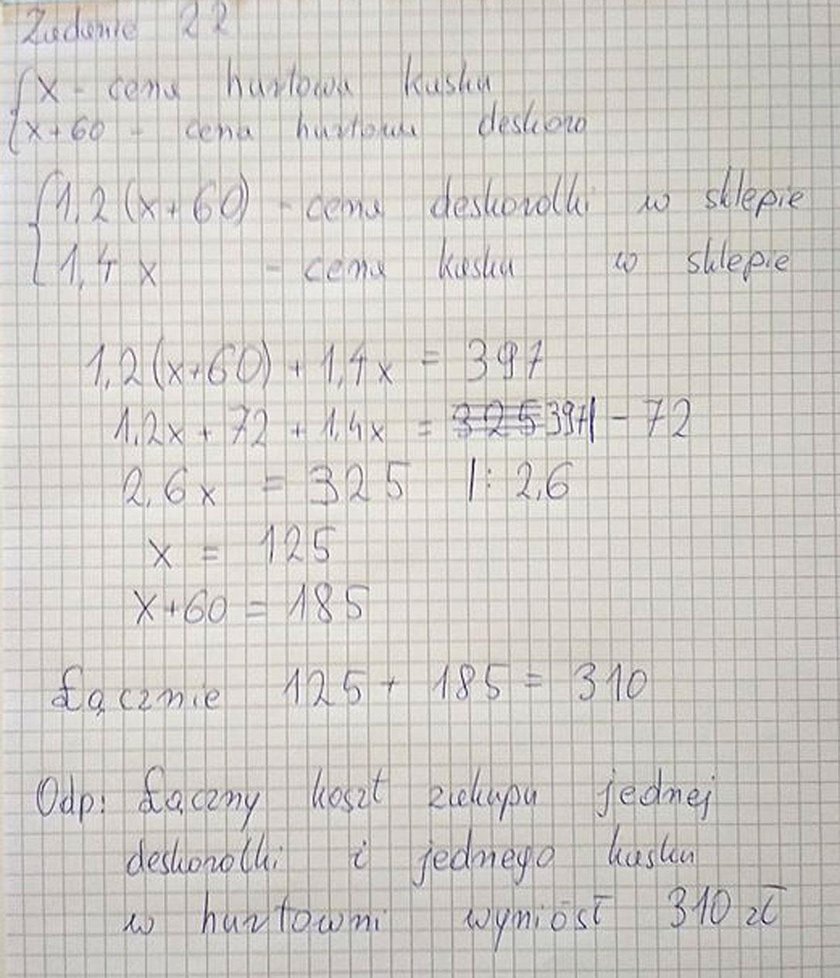 Zadanie 22
x - cena hurtowa kasku
x+60 - cena hurtowa deskoro
1,2(x+60) - cena deskorolki w sklepie
1,4x - cena kasku w sklepie
1,2(x+60) + 1,4x = 397
1,2x + 72 + 1,4x = 325 397 | - 72
2,6x = 325 |: 2,6
x = 125
x+60 = 185
Łącznie 125 + 185 = 310
Odp: Łączny koszt zakupu jednej
deskorolki i jednego kasku
w hurtowni wyniósł 310 zł